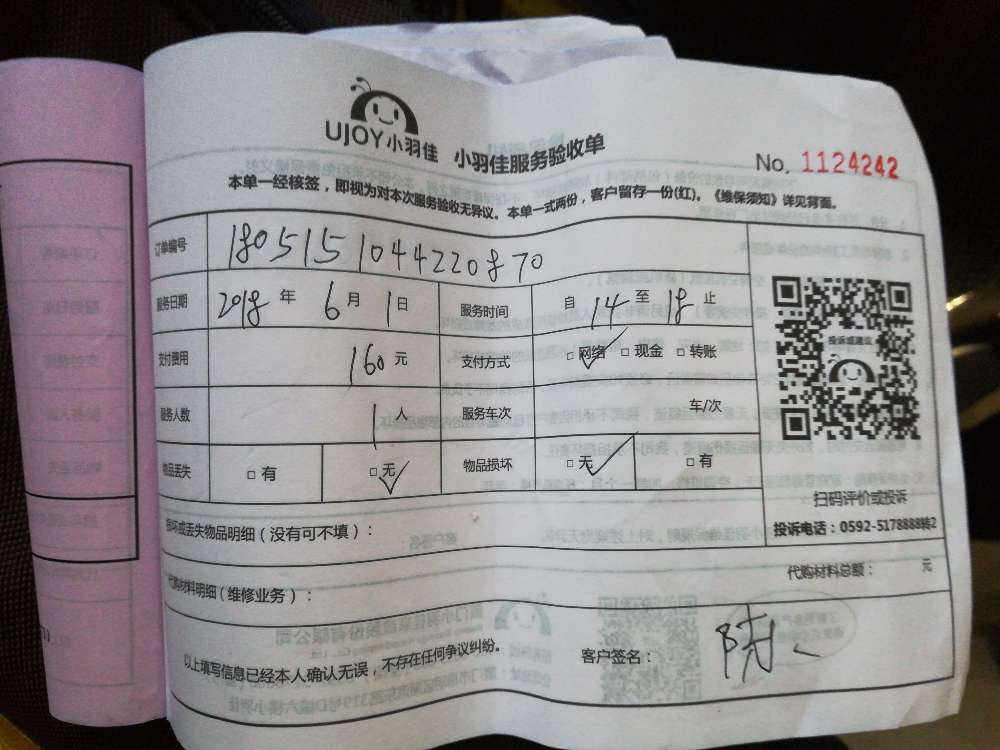 UJOY小羽佳 小羽佳服务验收单
No. 1124242
本单一经核签，即视为对本次服务验收无异议。本单一式两份，客户留存一份(红)。《维保须知》详见背面。
订单编号 1805151044220870
服务日期 2018 年 6 月 1 日 服务时间 自 14 至 18 止
支付费用 160 元 支付方式 □网络 □现金 □转账
服务人数 1 人 服务车次 车/次
物品丢失 □有 □无 物品损坏 □无 □有
投诉或建议
扫码评价或投诉
投诉电话：0592-5178888转2
损坏或丢失物品明细（没有可不填）：
代购材料明细（维修业务）： 代购材料总额： 元
以上填写信息已经本人确认无误，不存在任何争议纠纷。 客户签名：